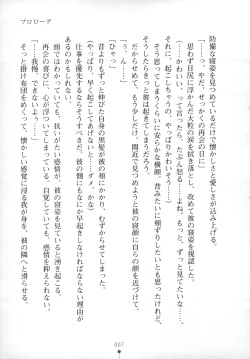 プロローグ
防備な寝姿を見つめているだけで懐かしさと愛しさが込み上げる。
「やっと。やだ、せっかくの再会の日に」
思わず目尻に浮かんだ大粒の涙を拭き落とし、改めて彼の寝姿を視認した。
かわいい……って言ったら、たぶん怒るよね。でも、もっと、ずっと見てたいな……。
それに、起こしちゃうの、やっぱりかわいそう……
そう思ってしまうくらいに安らかな横顔。昔みたいに頬ずりしたいとも思ったけれど、
そうしたらきっと彼は起きてしまうだろう。
だからせめて、もう少しだけ、間近で見つめようと彼の寝顔に自らの顔を近づけて、
「ひゃっ」
「う、ん……」
昔よりもずっと伸びた自身の黒髪が彼の頬にかかり、むずからせてしまった。
（やっぱり、早く起こしてあげないと……ダメ、かな）
仕事を優先するならそうするべきだ。しかし、彼の側にもなにか早起きしなければならない理由が
あるのかもしれない。
頭ではわかっていても、抗いがたい感情が、彼の寝姿を見ていると湧き起こる。
再会の喜びに、心が浮ついてしまっている。自覚していても、感情を抑えられない。
「……我慢、できない……っ」
そっと掛け布団をめくって、懐かしい感覚に浸る我が身を、彼の隣へと滑らせる。
007